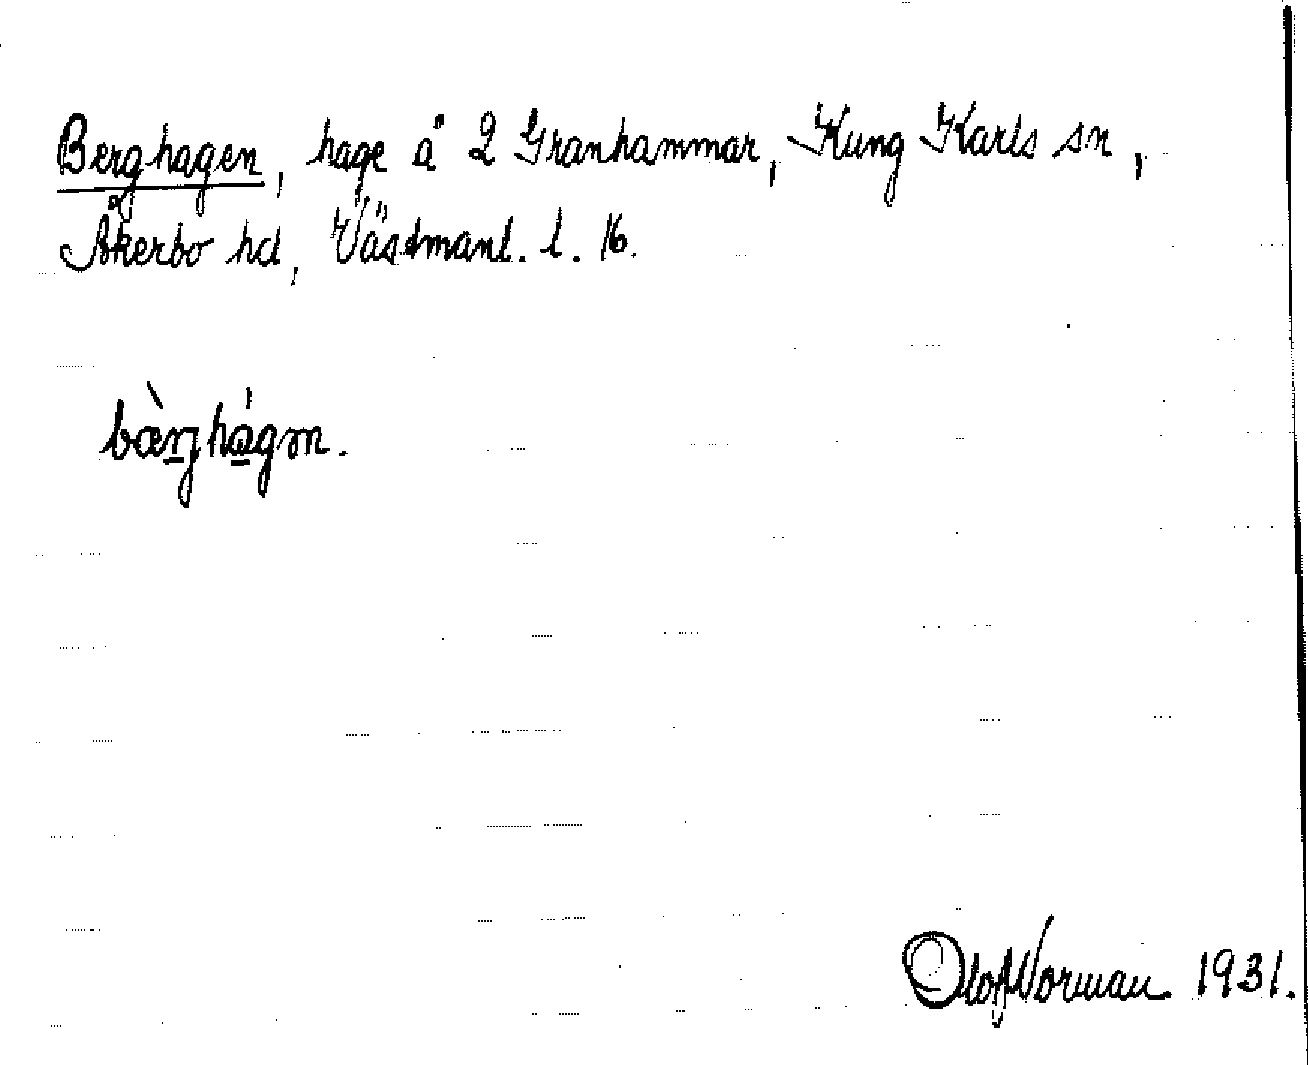 Berghagen, hage å 2 Granhammar, Kung Karls sn,
Åkerbo hd, Västmanl. l. 16.
bæ̀rjhágən.
Olof Norman 1931.